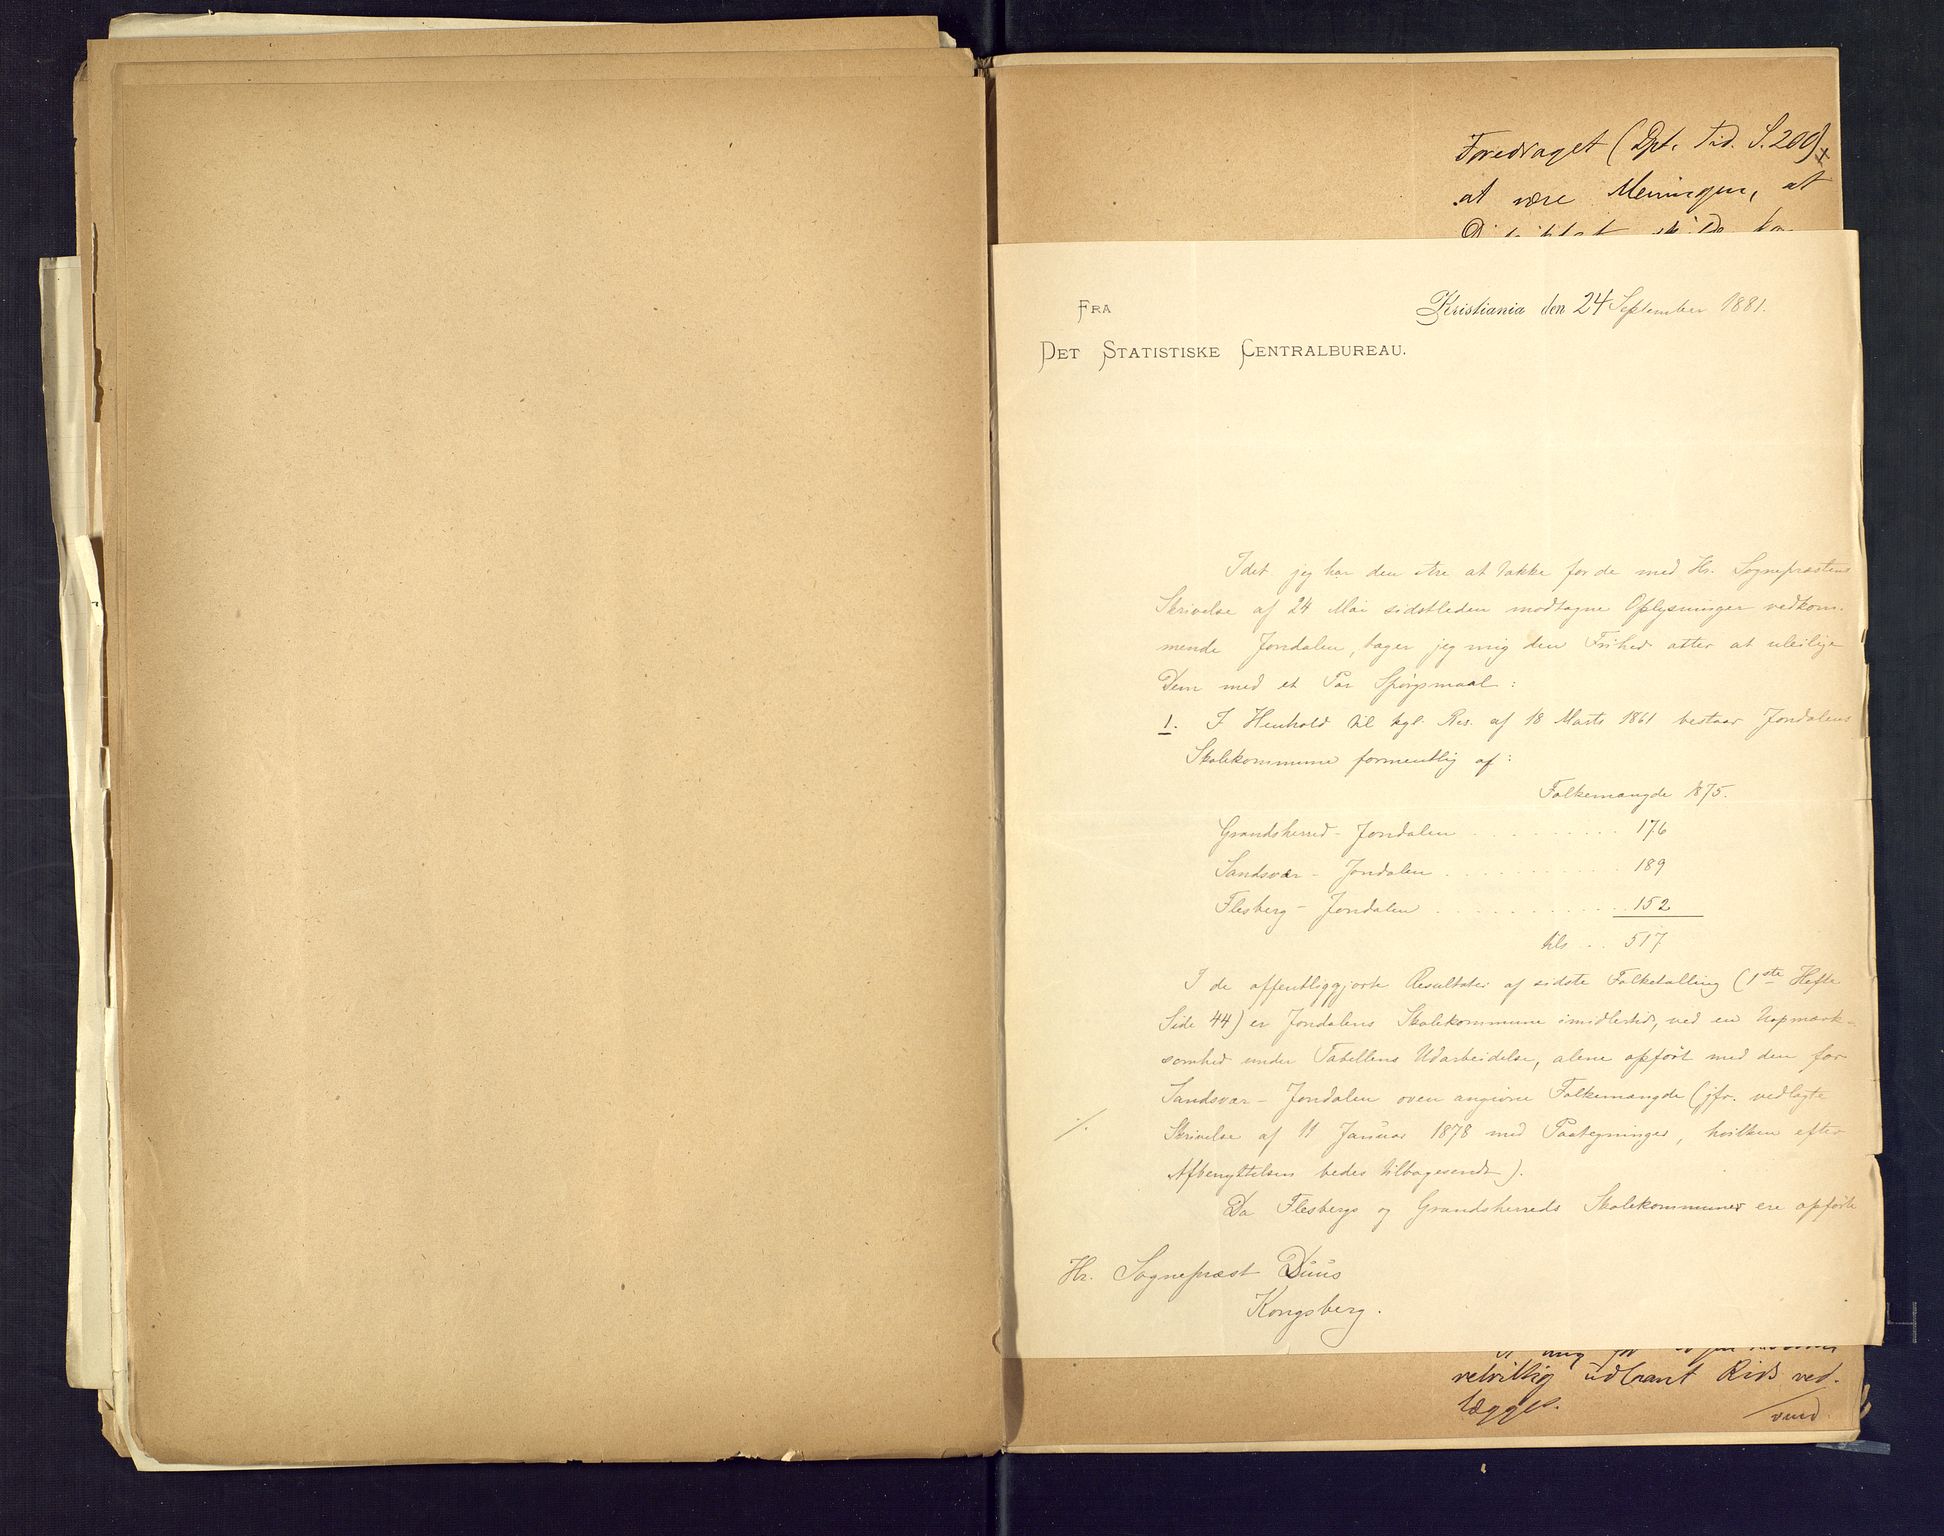 Foredraget (Dpt. Tid. S. 200)
at være Meningen, at
FRA
Kristiania den 24 September 1881.
DET STATISTISKE CENTRALBUREAU.
Idet jeg har den Ære at takke for de med Hr. Sognepræstens
Skrivelse af 24 Mai sidstleden modtagne Oplysninger vedkom-
mende Jondalen, tager jeg mig den Frihed atter at uleilige
Dem med et Par Spørgsmaal:
1. I Henhold til kgl. Res. af 18 Marts 1861 bestaar Jondalens
Skolekommune formentlig af:
Folkemængde 1875.
Grandsherred - Jondalen . . . . . . . . . 176
Sandsvær - Jondalen . . . . . . . . . . 189
Flesberg - Jondalen . . . . . . . . . . 152
tils. . . 517
I de offentliggjorte Resultater af sidste Folketælling (1ste Hefte
Side 44) er Jondalens Skolekommune imidlertid, ved en Uopmærk-
somhed under Tabellens Udarbeidelse, alene opført med den for
Sandsvær - Jondalen oven angivne Folkemængde (jfr. vedlagte
./. Skrivelse af 11 Januar 1878 med Paategninger, hvilken efter
Afbenyttelsen bedes tilbagesendt).
Da Flesbergs og Grandsherreds Skolekommuner ere opførte
Hr. Sognepræst Duus
Kongsberg.
velvillig udlaant Rids ved-
lægges.
vend